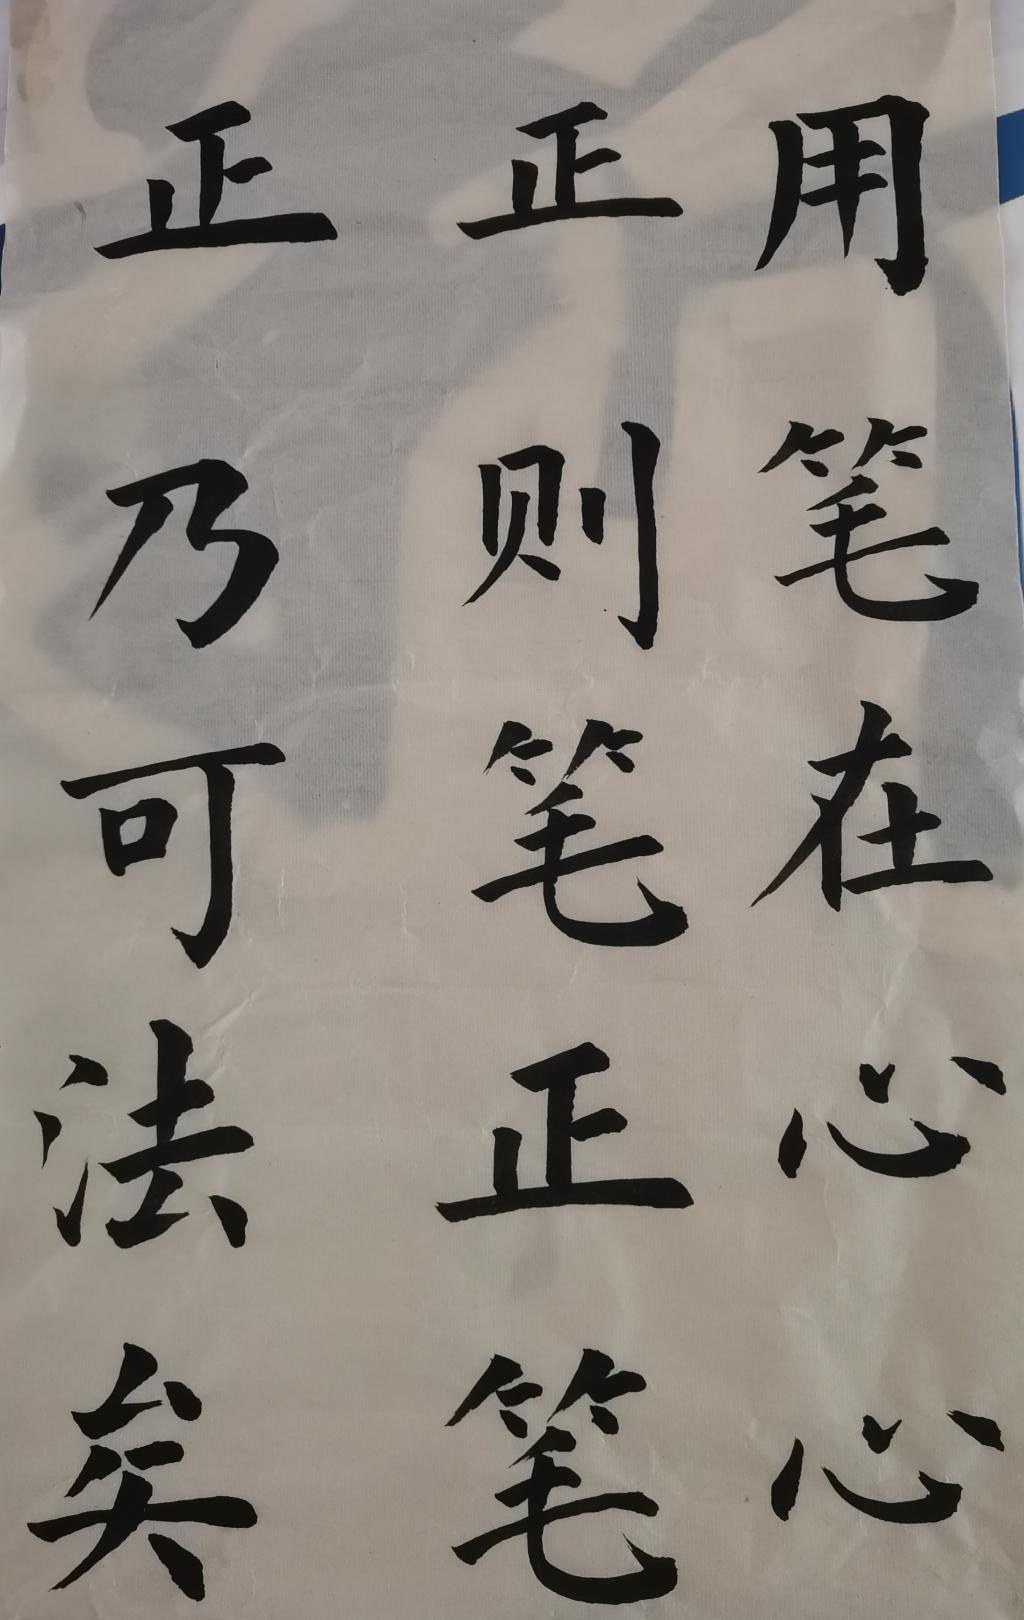 用笔在心心
正则笔正笔
正乃可法矣